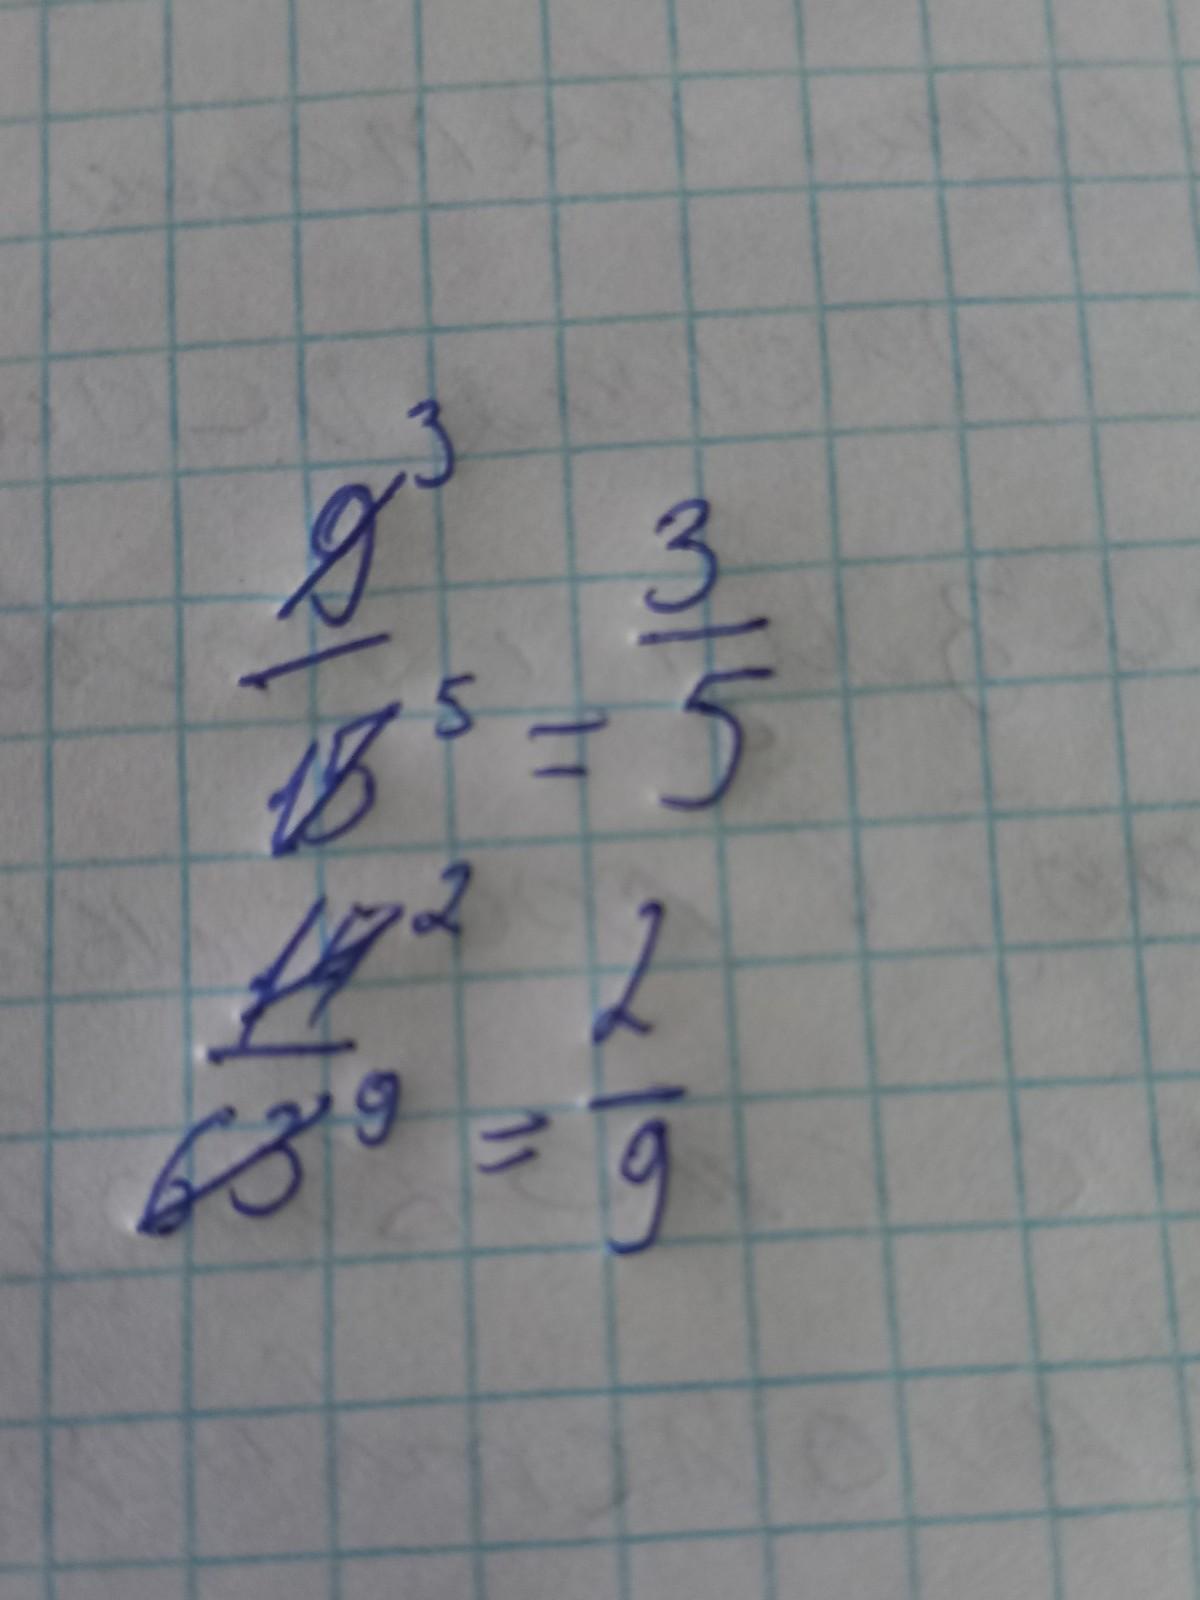 9 3
15 5 = 3/5
14 2
63 9 = 2/9